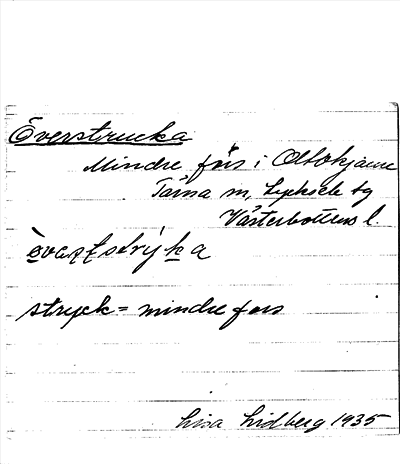 Överstrucka
Mindre fors i Altokjaure
Tärna sn, Lycksele tg
Västerbottens l.
stryck = mindre fors
Lisa Lidberg 1935